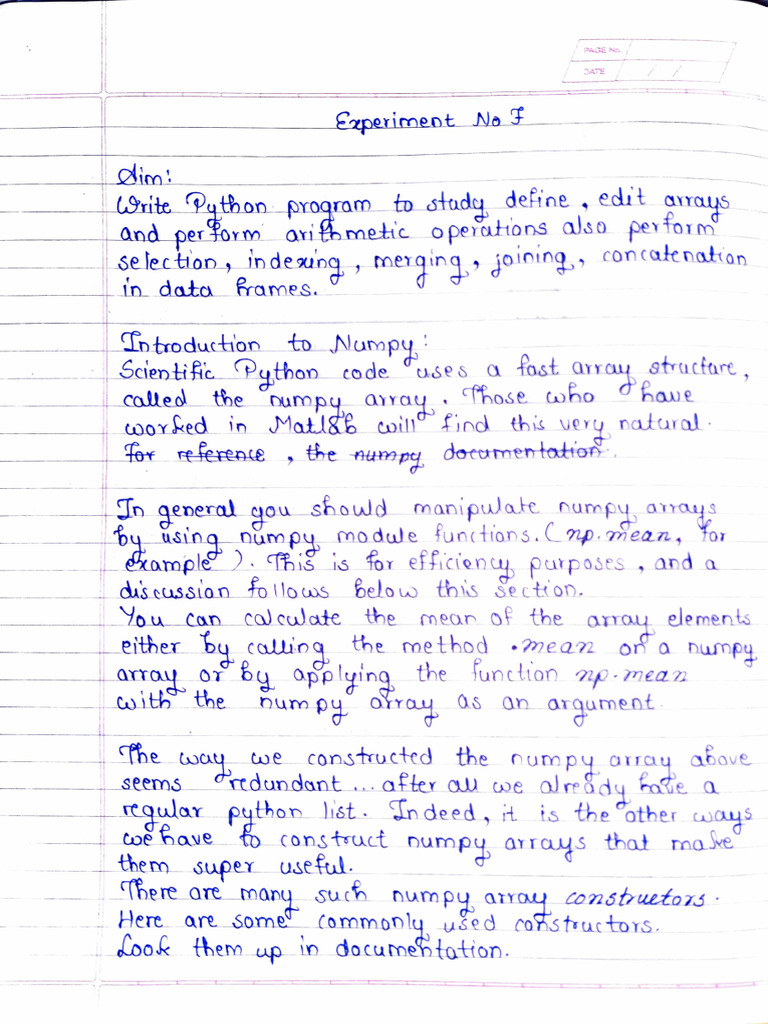 PAGE No.
DATE / /
Experiment No 7
Aim:
Write Python program to study define, edit arrays
and perform arithmetic operations also perform
selection, indexing, merging, joining, concatenation
in data frames.
Introduction to Numpy:
Scientific Python code uses a fast array structure,
called the numpy array. Those who have
worked in Matlab will find this very natural.
For reference, the numpy documentation.
In general you should manipulate numpy arrays
by using numpy module functions. (np.mean, for
example). This is for efficiency purposes, and a
discussion follows below this section.
You can calculate the mean of the array elements
either by calling the method .mean on a numpy
array or by applying the function np.mean
with the numpy array as an argument.
The way we constructed the numpy array above
seems redundant... after all we already have a
regular python list. Indeed, it is the other ways
we have to construct numpy arrays that make
them super useful.
There are many such numpy array constructors.
Here are some commonly used constructors.
Look them up in documentation.